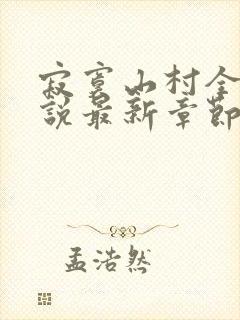 寂寞山村全
說最新章節
孟浩然